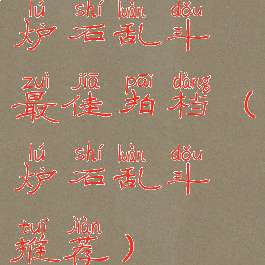 lú shí luàn dǒu
炉石乱斗
zuì jiā pāi dàng
最佳拍档（
lú shí luàn dǒu
炉石乱斗
tuī jiàn
推荐）